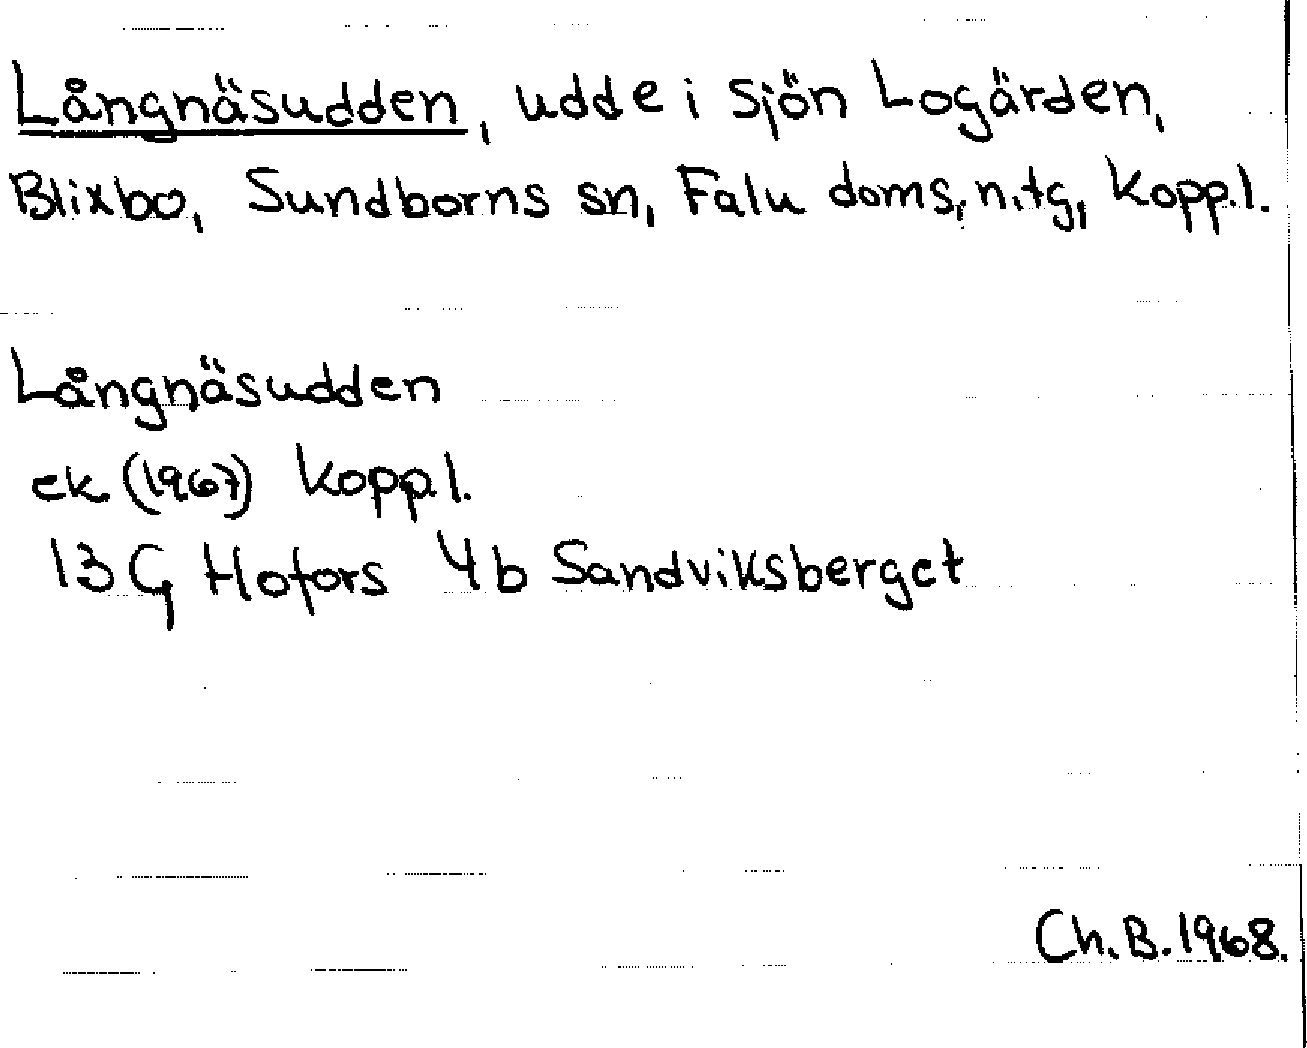 Långnäsudden, udde i sjön Logärden,
Blixbo, Sundborns sn, Falu doms, n. tg, Kopp. l.
Långnäsudden
ek (1967) Kopp. l.
13 G Hofors 4 b Sandviksberget
Ch. B. 1968.